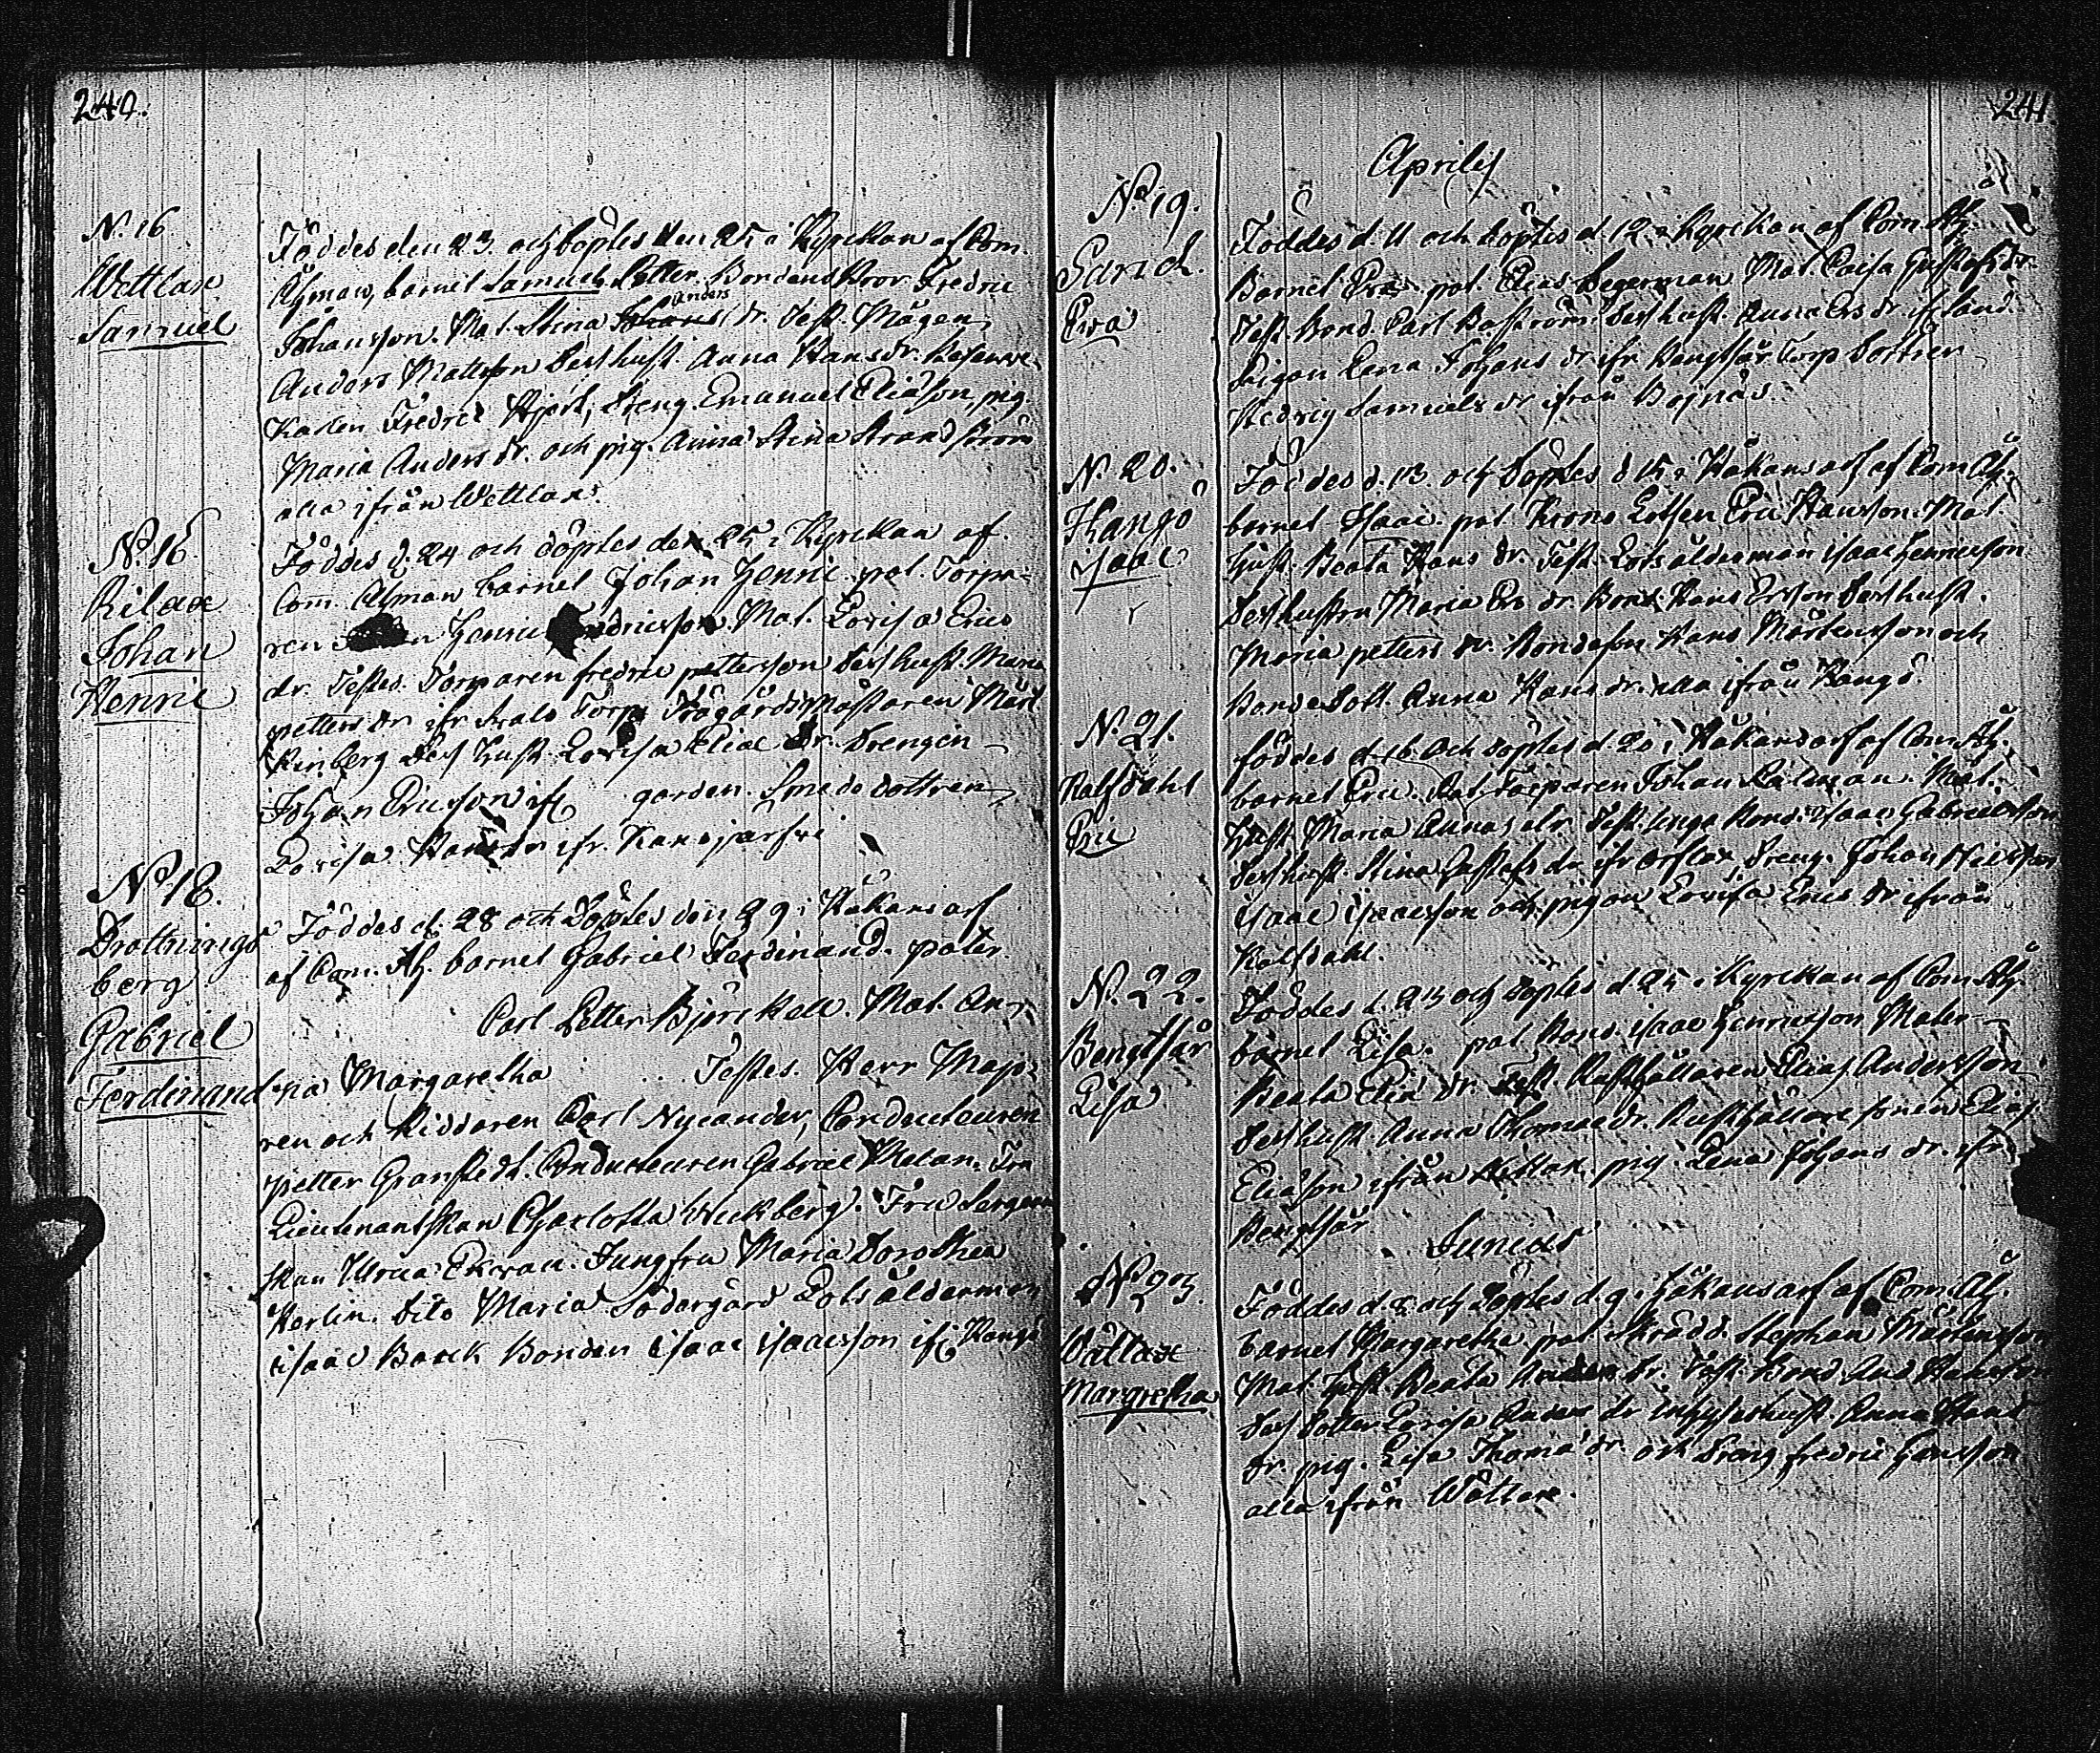 240.
N. 16
Wettlax
Samuel
Föddes den 23. och döptes den 25 i Kyrckan af Com.
Ahman, barnet Samuel Petter. Bondens Bror Fredric
Johansson. Mat. Stina Johans Anders dr. Test. Mågen
Anders Mattsson Des hust. Anna Hansdr. Reserve
Karlen Fredric Hjert, Dreng. Emanuel Eliasson, pig.
Maria Anders dr. och pig. Anna Stina Strandström
alla ifrån Wettlax.
N. 16
Rilax
Johan
Henric
Föddes d. 24 och döptes den 25 i Kyrckan af
Com. Ahman barnet Johan Henric pat. Torpa-
ren Henric Fredricsson. Mat. Lovisa Erics
dr. Testes. Torparen fredric pettersson Des hust. Maria
petters dr ifr Torp Trägårdsmästaren Mårt
Rinberg Des hust. Lovisa Eliae dr. Drengen
Johan Ericsson if garden. Smeds dottren
Lovisa Hansdr ifr. Kansjærfvi
No 18.
Drottnings
berg
Gabriel
Ferdinand
Föddes d. 28 och Döptes den 29 i Håkansarf
af Com. Ah. barnet Gabriel Ferdinand. pater.
Carl Petter Björckell. Mat. An-
na Margaretha Testes. Herr Majo-
ren och Riddaren Carl Nycander, Conducteuren
petter Granstedt. Conducteuren Gabriel Melan. Fru
Lieutenantskan Charlotta Wickberg. Fru Sergean
skan Ulrica Ekvall. Jungfru Maria Dorothea
Herlin. Dito Maria Södergård Lots åldermon
isaac Barck Bonden isaac isacsson if Hangö
241
Aprilis
No 19.
Sand
Ewa
Föddes d. 11 och döptes d. 12 i Kyrckan af Com. Ah
Barnet Eva pat. Elias Segerman Mat. Caisa Gustafs dr.
Test. Bond. Carl Boström Des hust. Anna Ers dr if Sand.
Pigan Lena Johans dr ifr. Bengtsår Torp Dottren
Hedvig Samuels dr ifrån Bojnäs.
N. 20.
Hangö
isaac
Föddes d. 13. och döptes d 15 i Håkansarf af Com Ah.
barnet Isaac. pat. Krono Lotsen Eric Hansson. Mat.
Hust. Beata Hans dr. Test. Lots ålderman isaac Henricsson
Des hustru Maria Ers dr. Bond. Hans Ersson Des hust.
Maria petters dr. Bondeson Hans Mårtensson och
Bonde Dott. Anna Hans dr. alla ifrån Hangö.
N. 21.
Kalfdahl
Eric
föddes d. 16 och döptes d. 20 i Håkansarf af Com Ah.
barnet Eric. Pat. Torparen Johan Kalman. Mat.
Hust. Maria Annas dr. Test. unga Bond. isaac Gabrielsson
Des hust. Stina Gustafs dr ifr Dreng. Johan Nilsson
isaac isacsson och pigan Lovisa Erics dr ifrån
Kalfdahl.
N. 22.
Bengtsår
Lisa
Föddes d. 23 och döptes d. 25 i Kyrckan af Com Ah.
barnet Lisa. pat. Bond. isaac Henricsson Mater
Beata Eliæ dr. Test. Rusthållaren Elias Andersson
Des hust. Anna Thomæ dr. Rusthållare sonen Elias
Eliasson ifrån pig. Lena Johans dr. ifr
Bengtsår
Junius
No 23.
Wättlax
Margretha
Föddes d. 8 och Döptes d. 9 i Håkansarf af Com. Ah.
barnet Margaretha. pat. Skrädd. Stephan Mårtensson
Mat. Hust. Beata dr. Test. Bond And Hansson
Des Dotter Lovisa Anders dr Inhyseshust. Anna Hans
dr. pig. Lisa Thomæ dr. och Dräng fredric Hansson
alla ifrån Wättlax.